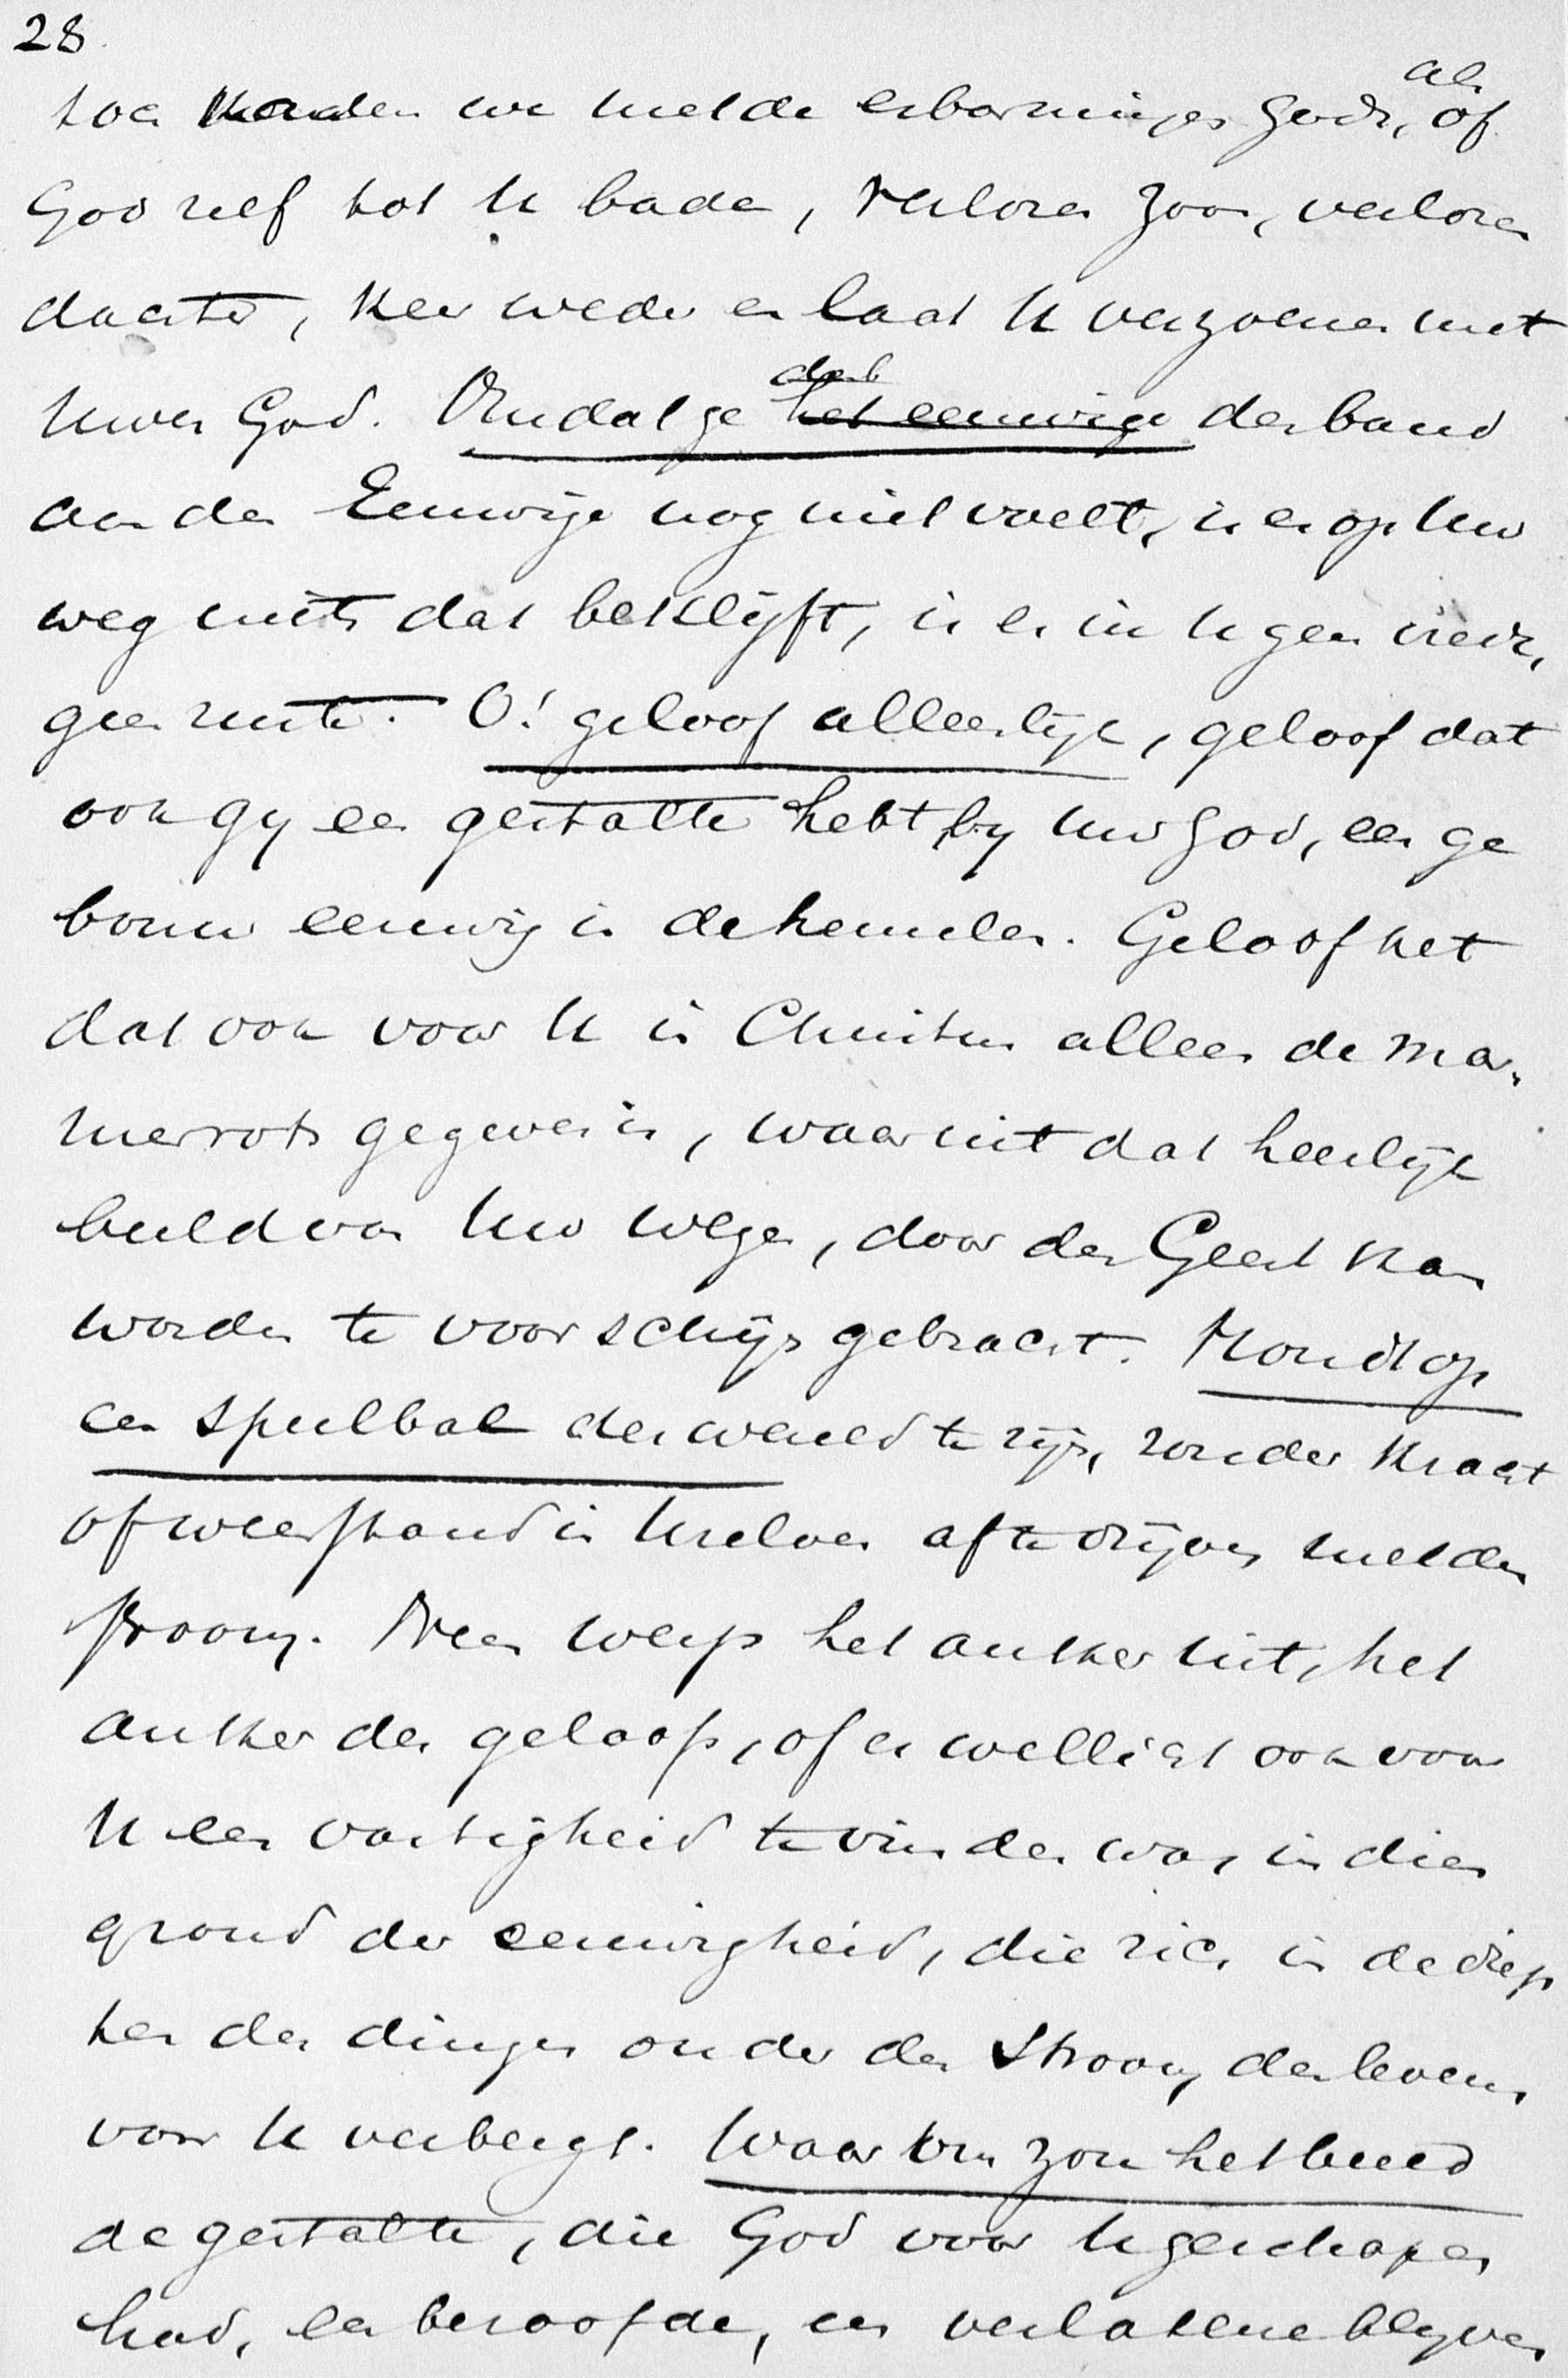 28.
toe konden we met de erbarmingen Gods, als of
God zelf tot U bade, verloren zoon, verloren
dochter, keer weder en laat U verzoenen met
Uwen God. Omdat ge dat het eeuwige den band
aan den Eeuwige nog niet voelt, is er op Uw
weg niets dat beklijft, is er in U geen vrede,
geen ruste. O! geloof alleenlijk, geloof dat
ook gy een gestalte hebt by Uw God, een ge
bouw eeuwig in de hemelen. Geloof het
dat ook voor U in Christus alleen de mar-
merrots gegeven is, waaruit dat heerlijk
beeld van Uw wezen, door den Geest kan
worden te voorschijn gebracht. Houd op
een speelbal der wereld te zijn, zonder kracht
of weerstand in Uzelven af te drijven met den
stroom. Neen werp het anker uit, het
anker des geloofs, of er wellicht ook voor
U een vastigheid te vinden was in dien
grond der eeuwigheid, die zich in de diep
ten der dingen onder den stroom des levens
voor U verbergt. Waarom zou het beeld
de gestalte, die God voor U geschapen
had, een beroofde, een verlatene blyven